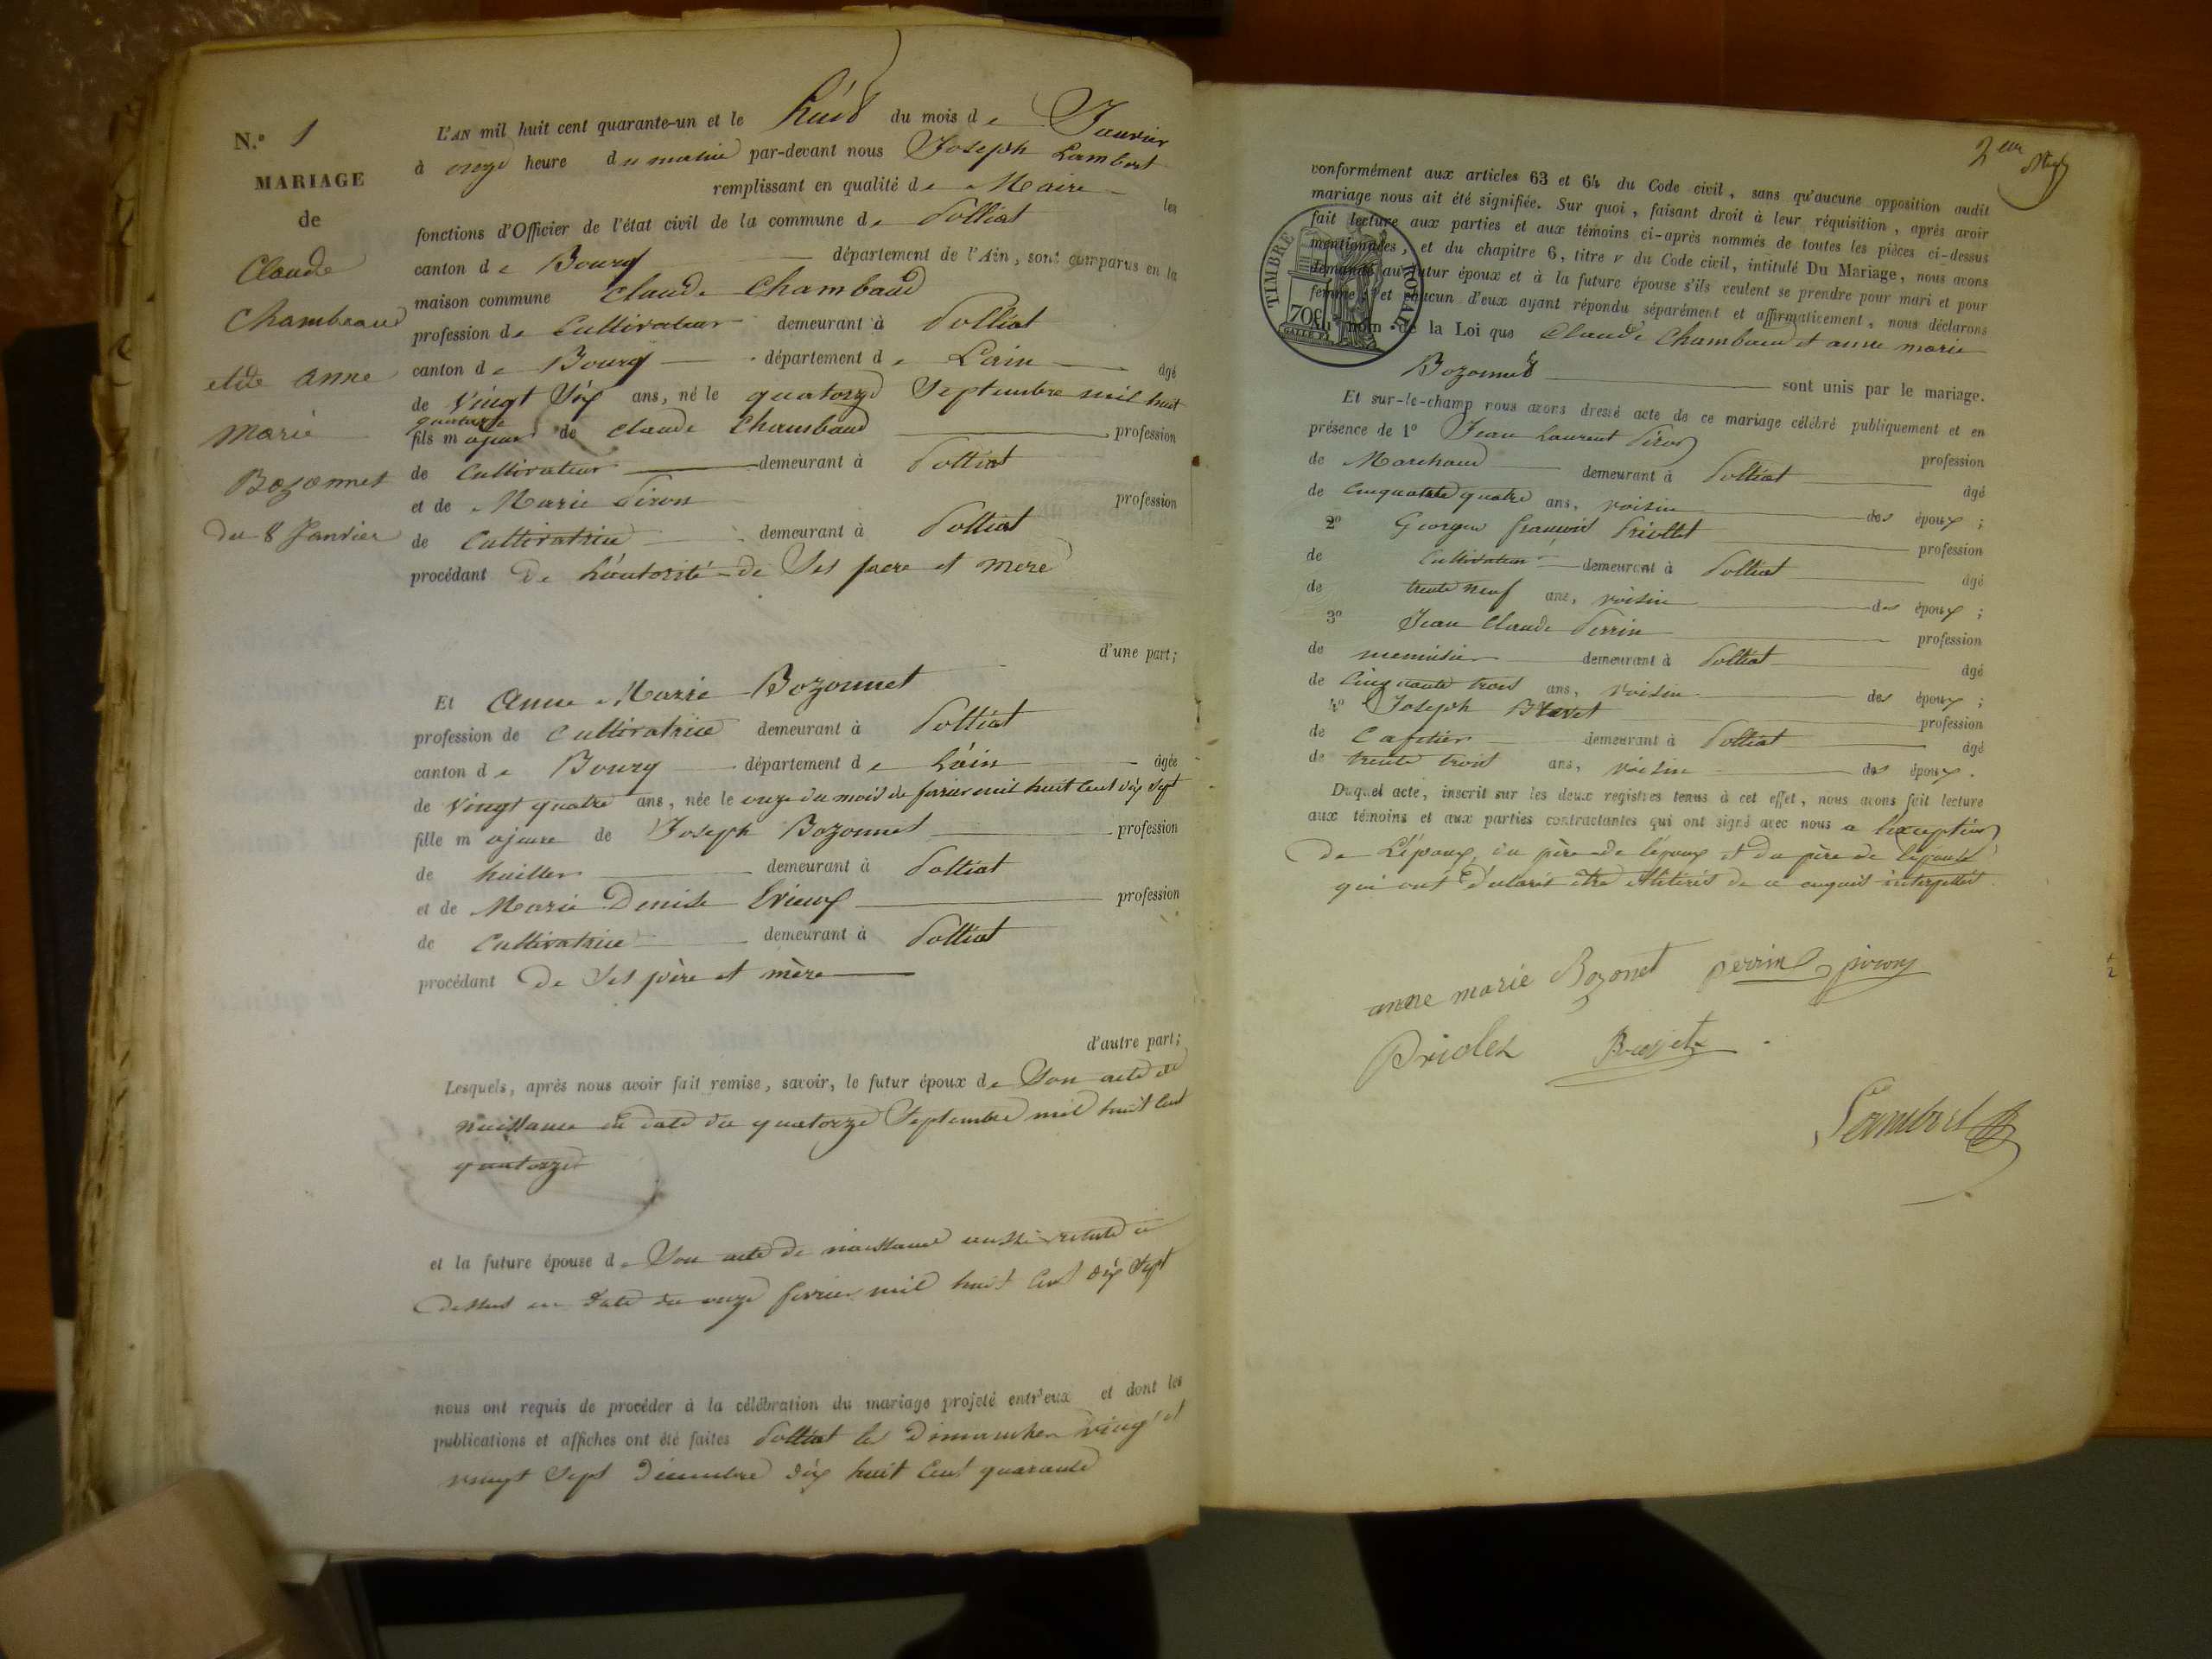 N.º 1
MARIAGE
de
Claude
Chambeaud
et de anne
marie
Bozonnet
du 8 Janvier
L'AN mil huit cent quarante-un et le huit du mois de Janvier
à onze heure du matin par-devant nous Joseph Lambert
remplissant en qualité de Maire les
fonctions d'Officier de l'état civil de la commune de Polliat
canton de Bourg département de l'Ain, sont comparus en la
maison commune Claude Chambaud
profession de Cultivateur demeurant à Polliat
canton de Bourg département de L'ain âgé
de Vingt Six ans, né le quatorze Septembre mil huit
quatorze
fils majeur de Claude Chambaud profession
de Cultivateur demeurant à Polliat
et de Marie Piron profession
de Cultivatrice demeurant à Polliat
procédant De L'autorité de Ses pere et mere
d'une part;
Et Anne Marie Bozonnet
profession de Cultivatrice demeurant à Polliat
canton de Bourg département de L'ain âgée
de Vingt quatre ans, née le onze du mois de fevrier mil huit Cent dix Sept
fille majeure de Joseph Bozonnet profession
de demeurant à Polliat
et de Marie Denise Erieux profession
de Cultivatrice demeurant à Polliat
procédant De Ses père et mère
d'autre part;
Lesquels, après nous avoir fait remise, savoir, le futur époux de Son acte de
naissance en date du quatorze Septembre mil huit Cent
quatorze
et la future épouse de Son acte de naissance aussi relaté ci
dessus en date du onze fevrier mil huit Cent dix Sept
nous ont requis de procéder à la célébration du mariage projeté entr'eux et dont les
publications et affiches ont été faites Polliat les Dimanches vingt et
vingt Sept Décembre dix huit Cent quarante
2
conformément aux articles 63 et 64 du Code civil, sans qu'aucune opposition audit
mariage nous ait été signifiée. Sur quoi, faisant droit à leur réquisition, après avoir
fait lecture aux parties et aux témoins ci-après nommés de toutes les pièces ci-dessus
mentionnées, et du chapitre 6, titre v du Code civil, intitulé Du Mariage, nous avons
demandé au futur époux et à la future épouse s'ils veulent se prendre pour mari et pour
femme; et chacun d'eux ayant répondu séparément et affirmativement, nous déclarons
au nom de la Loi que Claude Chambaud et anne marie
Bozonnet sont unis par le mariage.
TIMBRE ROYAL
70c
Et sur-le-champ nous avons dressé acte de ce mariage célébré publiquement et en
présence de 1º Jean Laurent Piron profession
de Marchand demeurant à Polliat âgé
de Cinquante quatre ans, voisin des époux;
2º Georges francois Priollet profession
de Cultivateur demeurant à Polliat âgé
de trente neuf ans, voisin des époux;
3º Jean Claude Perrin profession
de menuisier demeurant à Polliat âgé
de Cinquante trois ans, voisin des époux;
4º Joseph profession
de Cafetier demeurant à Polliat âgé
de trente trois ans, voisin des époux.
Duquel acte, inscrit sur les deux registres tenus à cet effet, nous avons fait lecture
aux témoins et aux parties contractantes qui ont signé avec nous a l'exception
de L'époux, du père de l'époux et du père de l'épouse
qui ont déclaré être illitérés de ce enquis interpellés.
anne marie Bozonet perrin piron
Priolet
Lambert